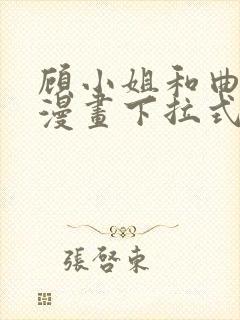 顾小姐和曲
漫畫下拉式
張啓東